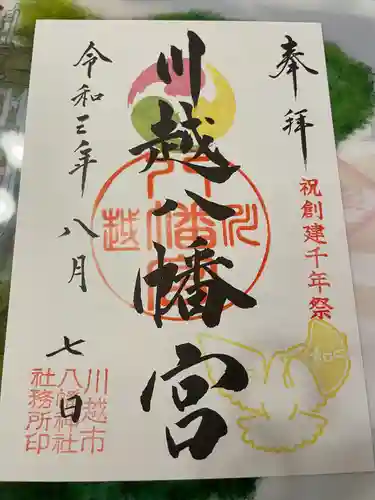 奉拝
祝創建千年祭
川越八幡宮
令和三年八月七日
川越市
八幡神社
社務所印